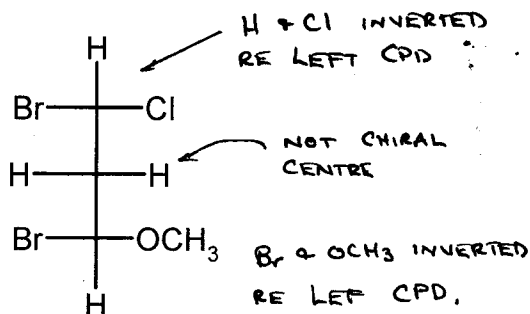 H
H & Cl INVERTED
RE LEFT CPD
Br Cl
NOT CHIRAL
CENTRE
H H
Br OCH3
Br & OCH3 INVERTED
RE LEF CPD.
H